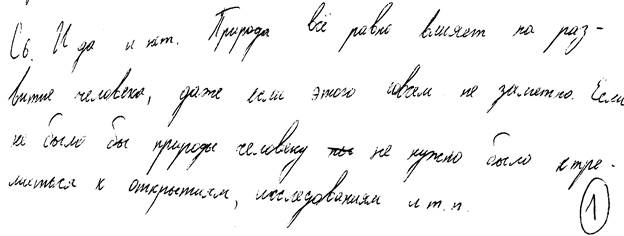 С6. И да и нет. Природа всё равно влияет на раз-
витие человека, даже если этого совсем не заметно. Если
не было бы природы человеку не нужно было стре-
миться к открытиям, исследованиям и т.п.
1